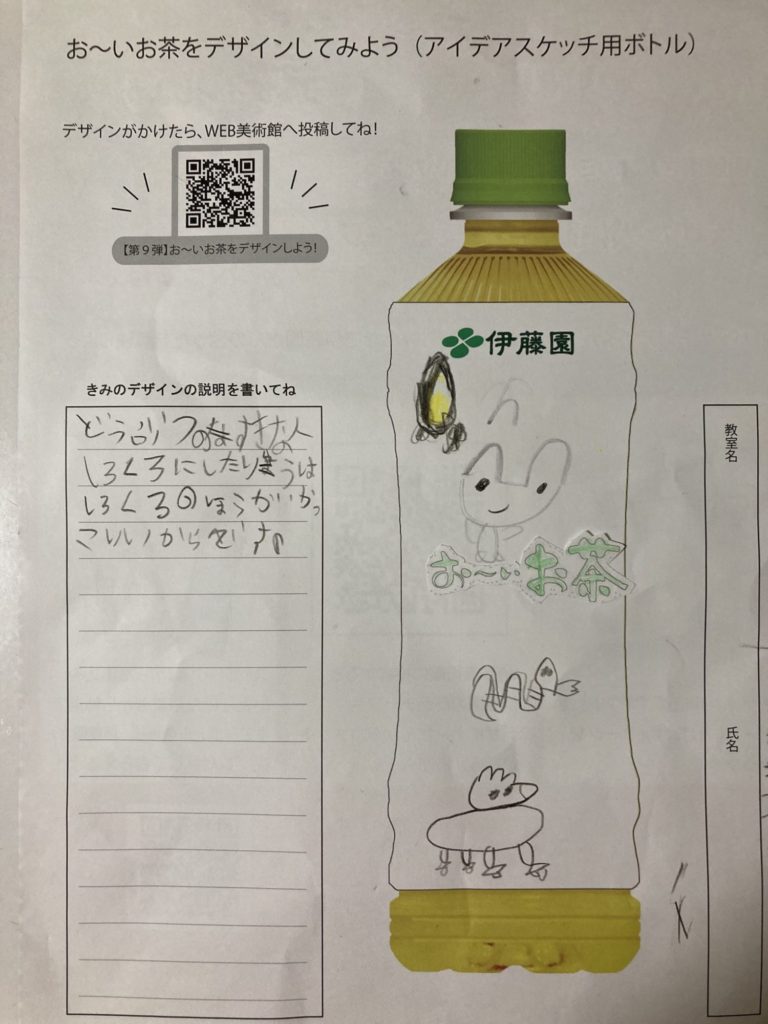 お〜いお茶をデザインしてみよう（アイデアスケッチ用ボトル）
デザインがかけたら、WEB美術館へ投稿してね！
【第９弾】お〜いお茶をデザインしよう！
伊藤園
きみのデザインの説明を書いてね
どうぶつの すきな人
しろくろにしたりゆうは
しろくろのほうがかっ
こいいからです。
お〜いお茶
教室名
氏名